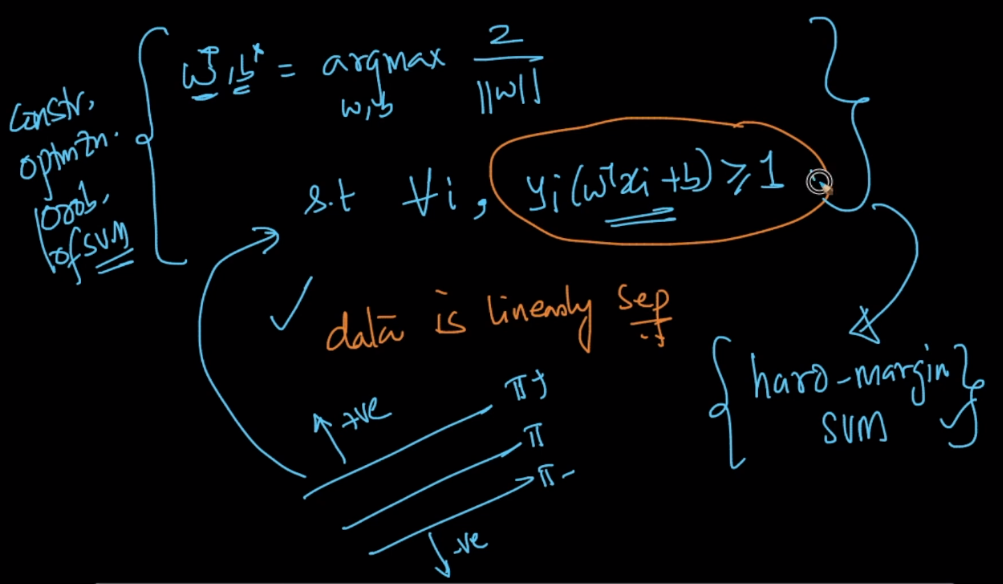 Constr.
optmzn.
prob.
of SVM
w*, b* = argmax 2
w,b ||w||
s.t ∀i, yi(wᵀxi + b) ≥ 1
✓ data is linearly sep
hard-margin
SVM
+ve
π+
π
π-
-ve